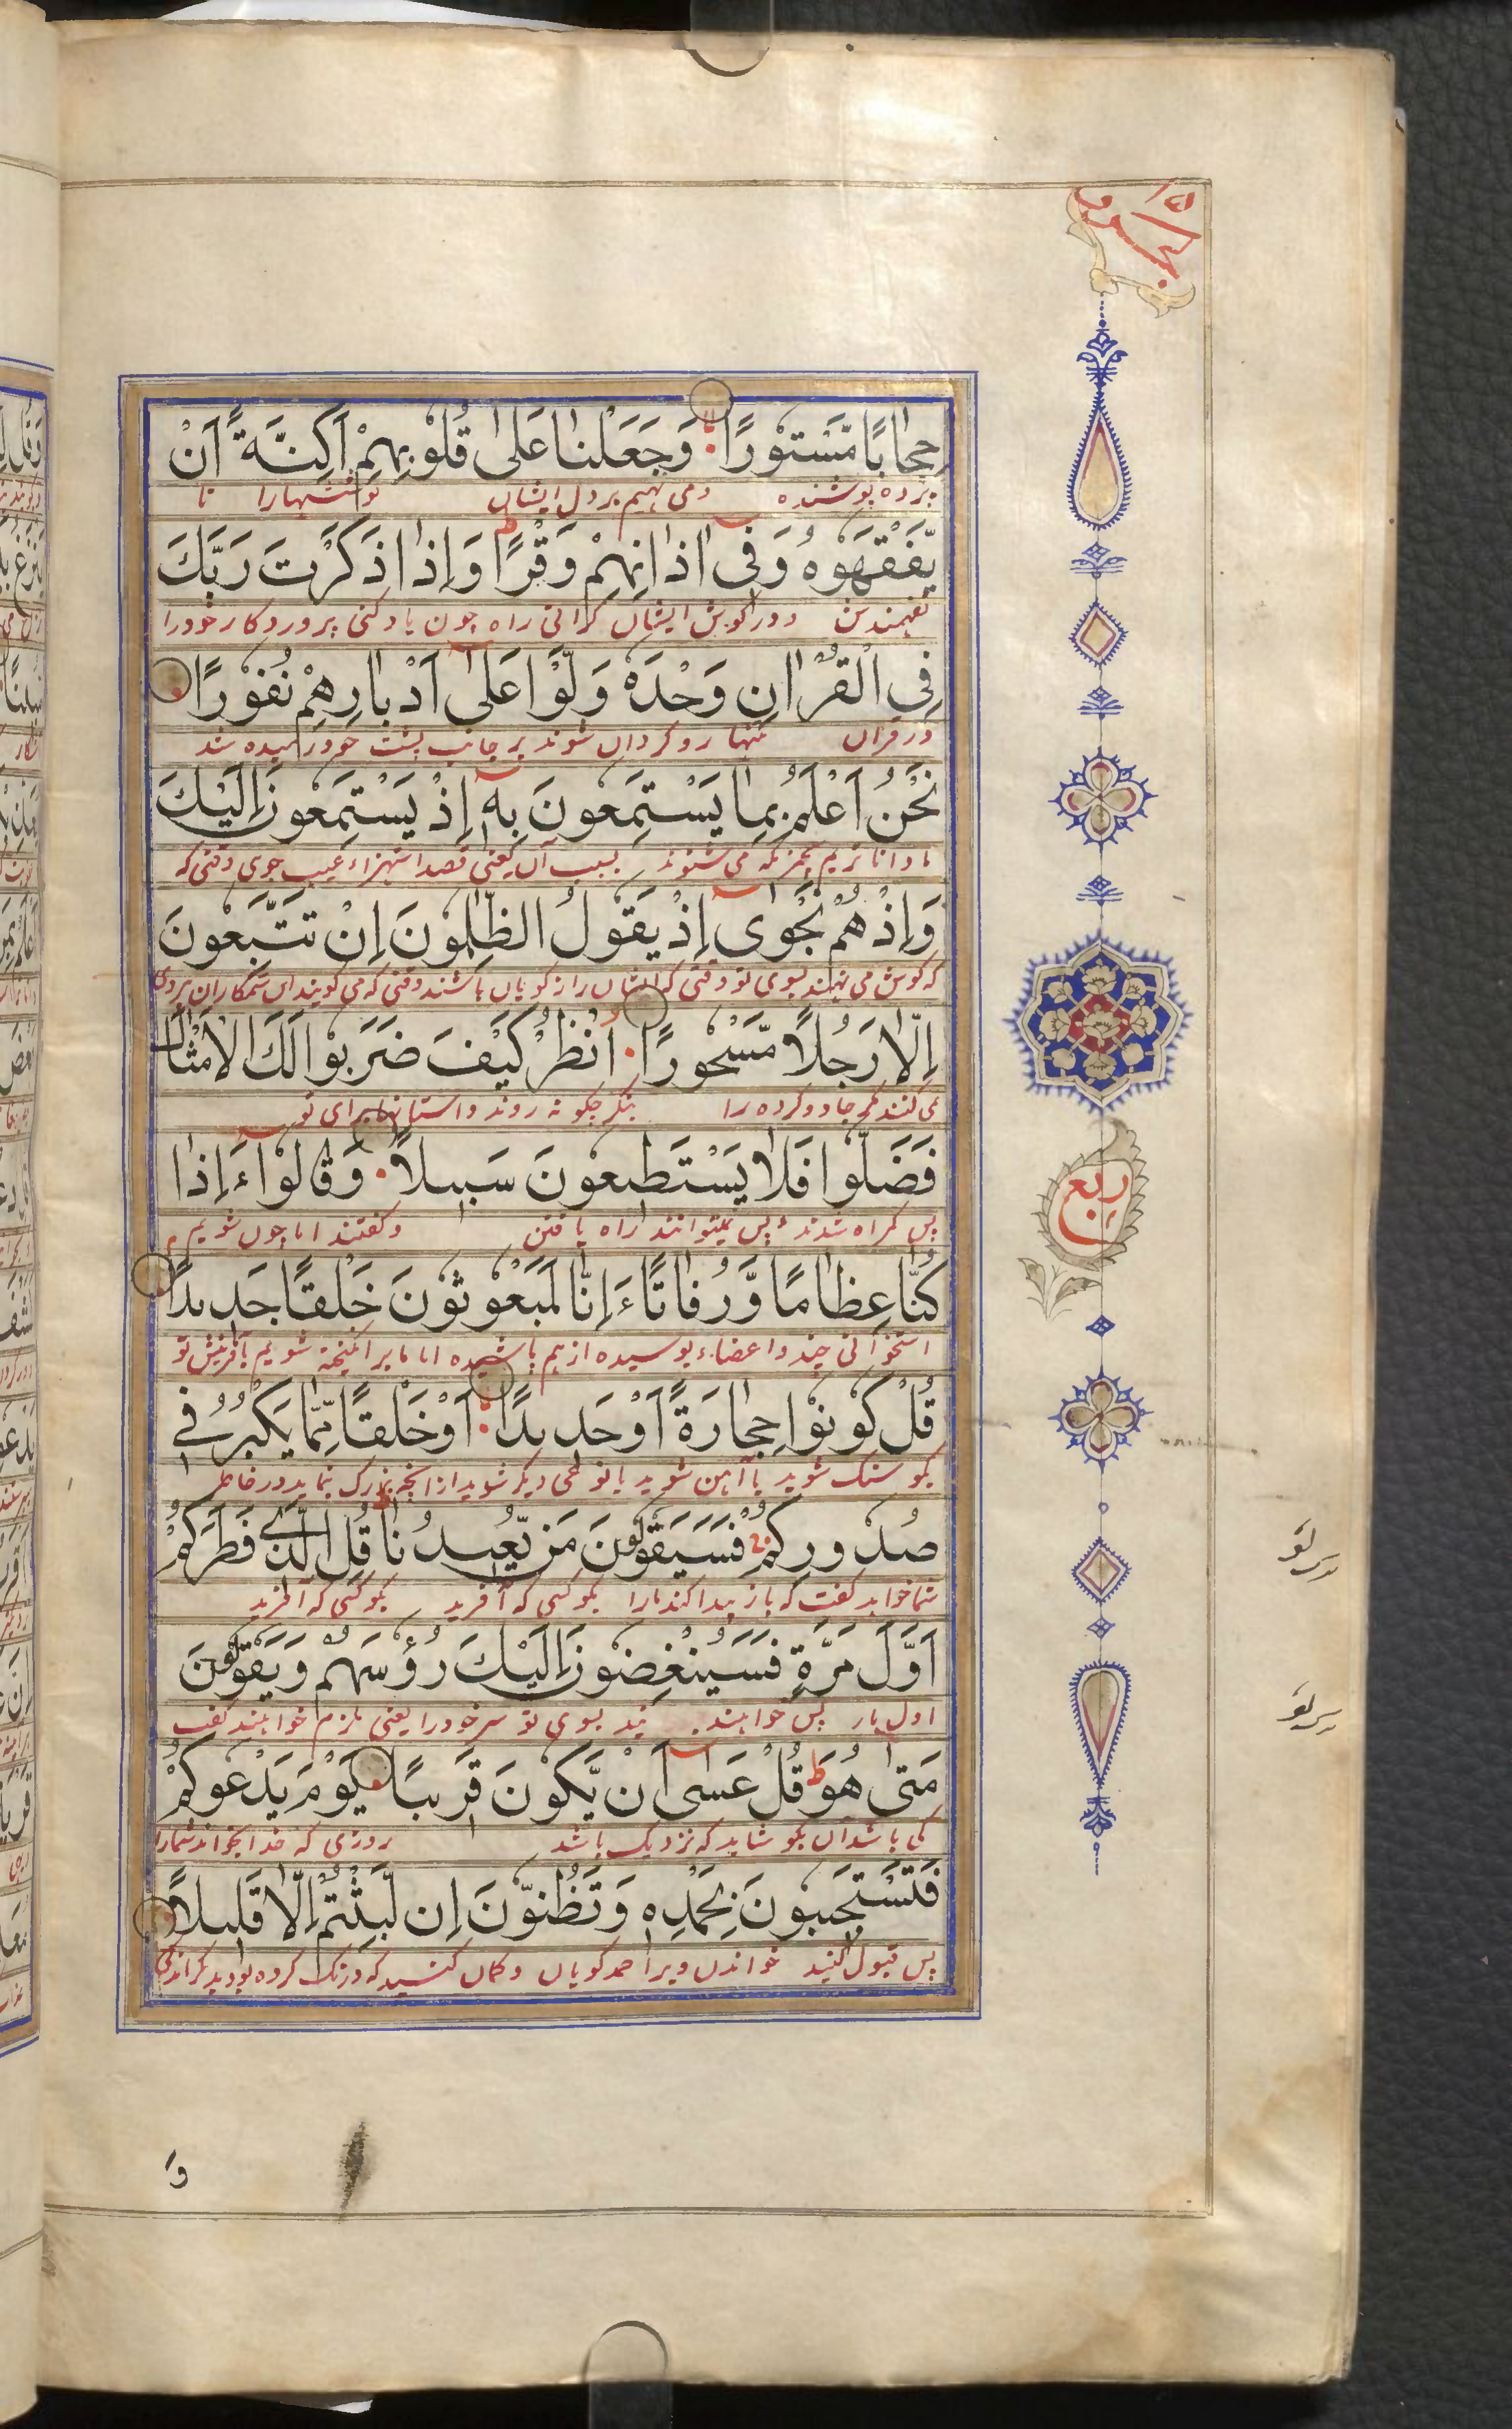 حِجَابًا مَّسْتُوْرًا وَجَعَلْنَا عَلٰى قُلُوْبِهِمْ اَكِنَّةً اَنْ
پرده پوشنده و می نهیم بر دل ایشان پوششها را تا
يَّفْقَهُوْهُ وَفِيْ اٰذَانِهِمْ وَقْرًا ط وَاِذَا ذَكَرْتَ رَبَّكَ
نفهمندش و در گوش ایشان گرانی را و چون یاد کنی پروردگار خود را
فِي الْقُرْاٰنِ وَحْدَهٗ وَلَّوْا عَلٰٓى اَدْبَارِهِمْ نُفُوْرًا
در قرآن تنها رو گردان شوند بر جانب پشت خود رمیده شد
نَحْنُ اَعْلَمُ بِمَا يَسْتَمِعُوْنَ بِهٖٓ اِذْ يَسْتَمِعُوْنَ اِلَيْكَ
ما دانا تریم بچیزیکه می شنوند بسبب آن یعنی قصد استهزاء و عیب جوی وقتی که
وَاِذْ هُمْ نَجْوٰٓى اِذْ يَقُوْلُ الظّٰلِمُوْنَ اِنْ تَتَّبِعُوْنَ
که گوش می نهند بسوی تو وقتی که ایشان راز گویان باشند وقتی که می گویند این ستمگاران پیروی
اِلَّا رَجُلًا مَّسْحُوْرًا اُنْظُرْ كَيْفَ ضَرَبُوْا لَكَ الْاَمْثَالَ
نمی کنند مگر جادو کرده را بنگر چگونه زدند داستانها برای تو
فَضَلُّوْا فَلَا يَسْتَطِيْعُوْنَ سَبِيْلًا وَقَالُوْٓا ءَاِذَا
پس گمراه شدند پس نمیتوانند راه یافتن و گفتند اما چون شویم
كُنَّا عِظَامًا وَّرُفَاتًا ءَاِنَّا لَمَبْعُوْثُوْنَ خَلْقًا جَدِيْدًا
استخوانی چند و اعضاء بوسیده از هم پاشیده اما ما برانگیخته شویم بآفرینش نو
قُلْ كُوْنُوْا حِجَارَةً اَوْ حَدِيْدًا اَوْ خَلْقًا مِّمَّا يَكْبُرُ فِيْ
بگو سنگ شوید یا آهن شوید یا نوعی دیگر شوید از آنچه بزرگ نماید در خاطر
صُدُوْرِكُمْ فَسَيَقُوْلُوْنَ مَنْ يُّعِيْدُنَا قُلِ الَّذِيْ فَطَرَكُمْ
شما خواهند گفت که باز پیدا کند ما را بگو کسی که آفرید بگو کسی که آفرید
اَوَّلَ مَرَّةٍ فَسَيُنْغِضُوْنَ اِلَيْكَ رُءُوْسَهُمْ وَيَقُوْلُوْنَ
اول بار پس خواهند بسوی تو سر خود را یعنی خواهند گفت
مَتٰى هُوَ ط قُلْ عَسٰٓى اَنْ يَّكُوْنَ قَرِيْبًا يَوْمَ يَدْعُوْكُمْ
کی باشد آن بگو شاید که نزدیک باشد روزی که خدا بخواند شما را
فَتَسْتَجِيْبُوْنَ بِحَمْدِهٖ وَتَظُنُّوْنَ اِنْ لَّبِثْتُمْ اِلَّا قَلِيْلًا
پس قبول کنید خواندن ویرا حمد گویان و گمان کنید که درنگ کرده بودید مگر اندکی
ربع
وَ